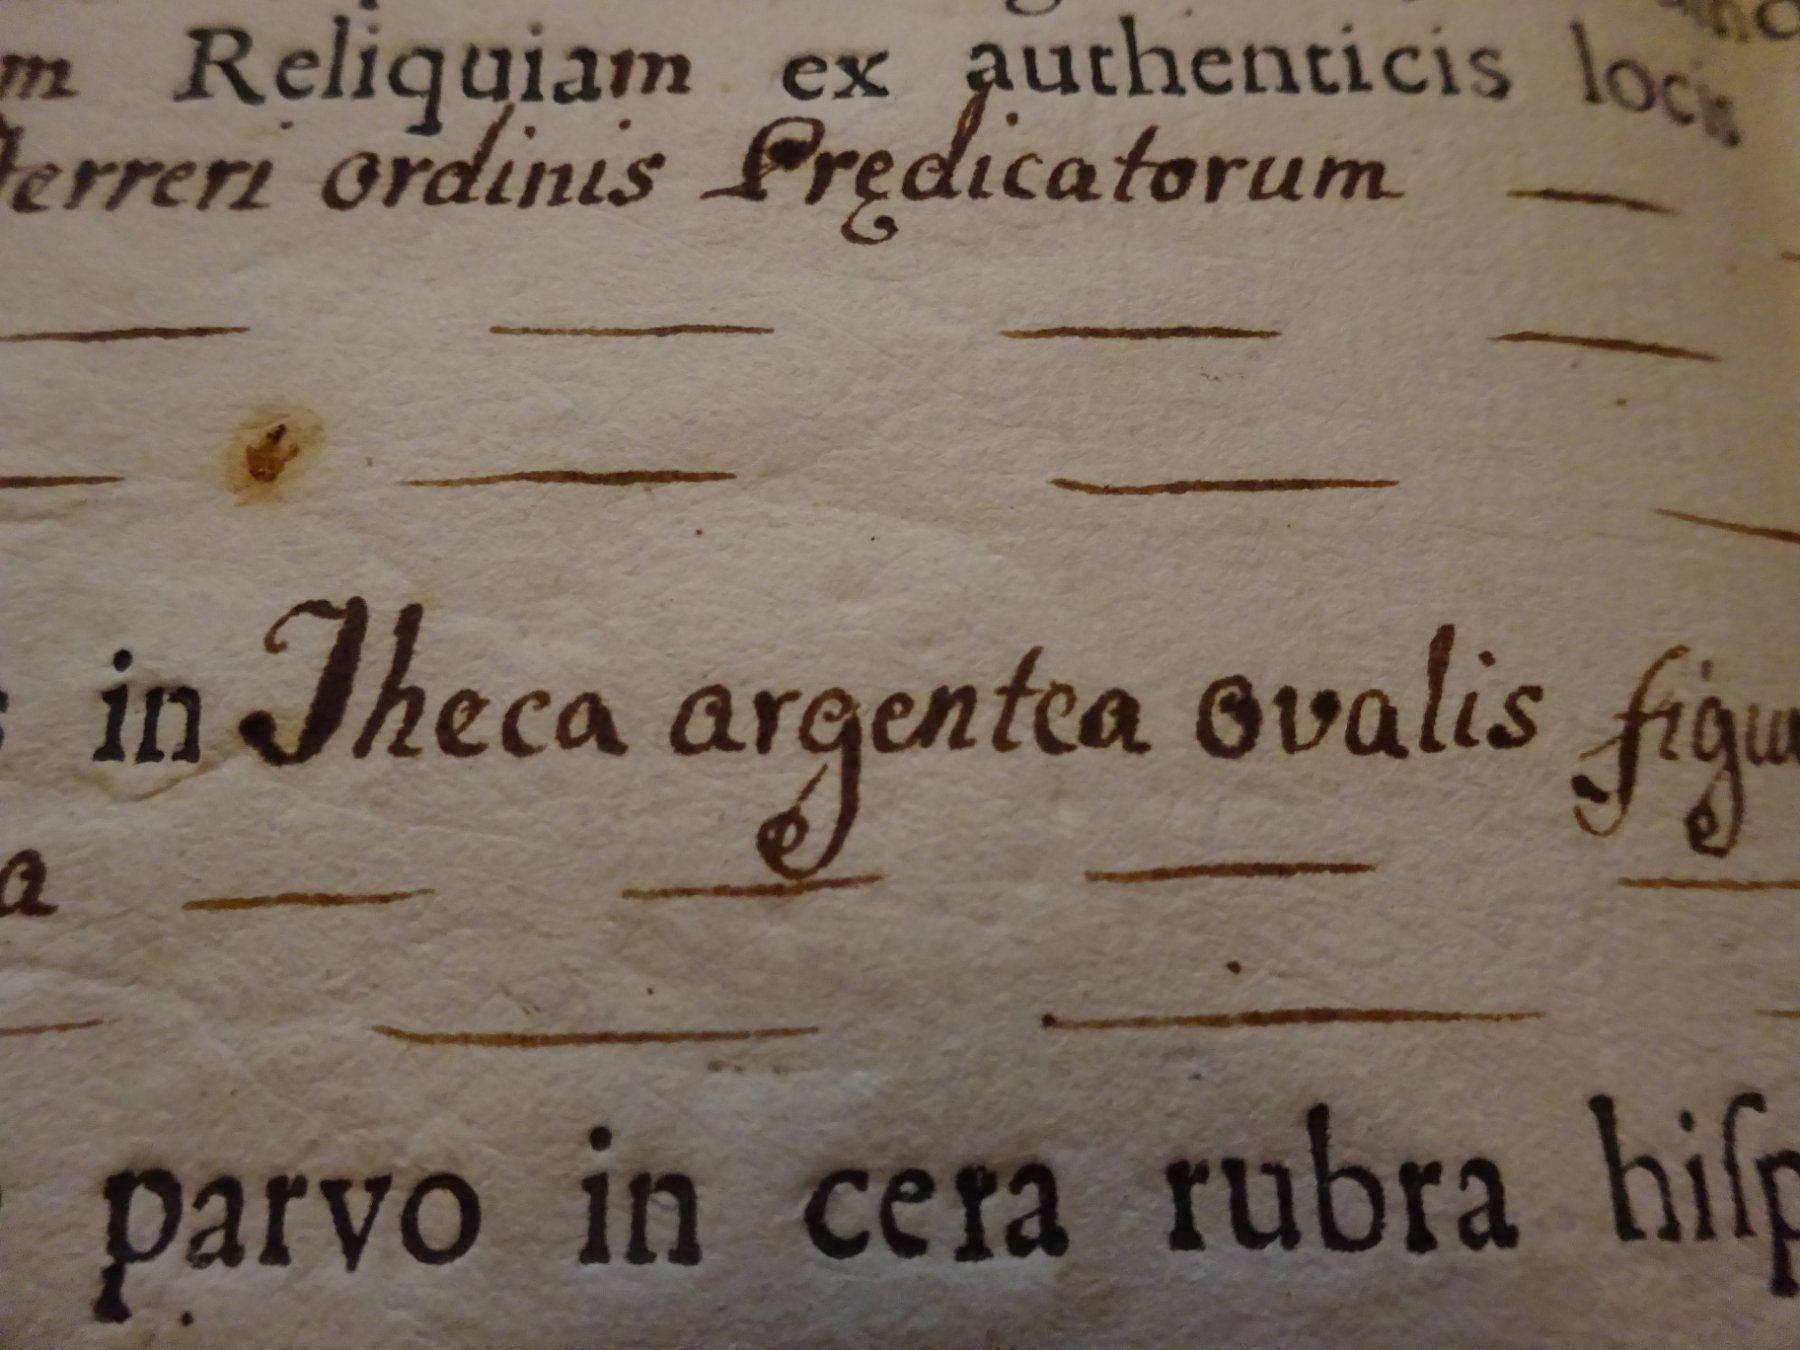 m Reliquiam ex authenticis locis
ferreri ordinis Prędicatorum
in Theca argentea ovalis figu
a
parvo in cera rubra hiſp